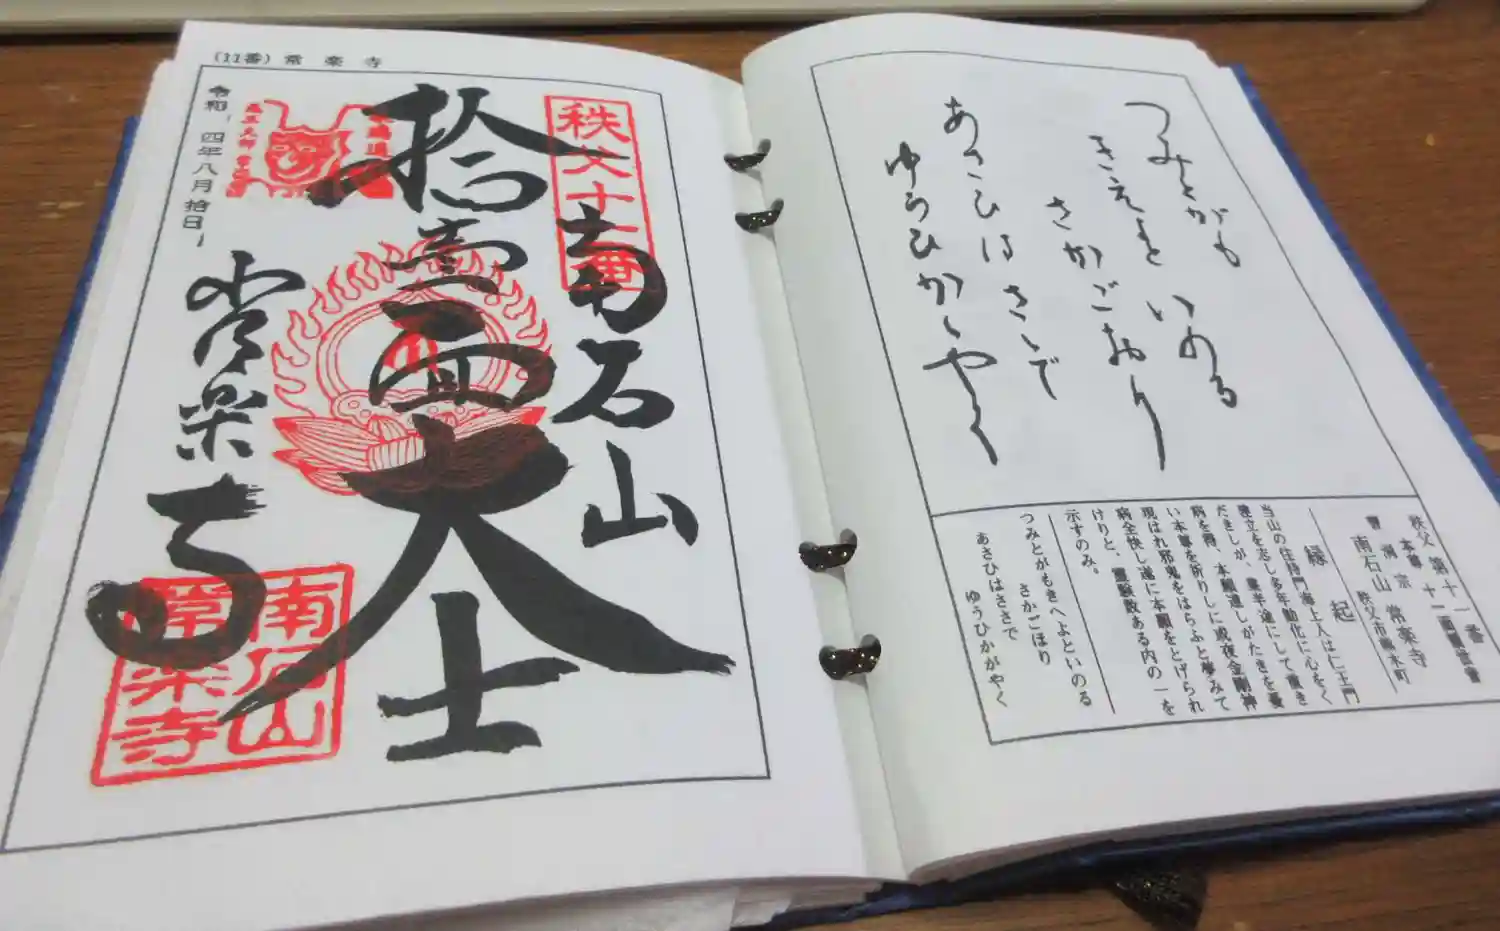 (11番) 常楽寺
令和 四年八月拾日
秩父十一番
南石山
拾壱面大士
常楽寺
南石山
常楽寺
つみとがも
きえよと いのる
さかごおり
あさひは さゝで
ゆうひかゝやく
秩父 第十一番
本尊 十一面観音
曹洞宗
南石山 常楽寺
秩父市熊木町
縁起
当山の住持門海上人は仁王門
建立を志し多年勧化に心をく
だきしが、業半途にして重き
病を得、本願達しがたきを憂
い本尊を祈りしに或夜金剛神
現はれ邪鬼をはらふと夢みて
病全快し遂に本願をとげられ
けりと、霊験数ある内の一を
示すのみ。
つみとがもきへよといのる
さかごほり
あさひはささで
ゆうひかがやく